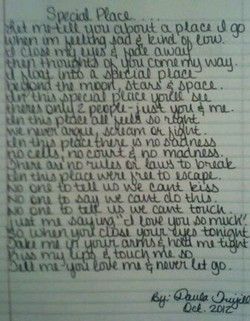 Special Place....
Let me tell you about a place I go
when I'm feeling sad & kind of low.
I close my eyes & fade away
when thoughts of you come my way.
I float into a special place
beyond the moon, stars & space.
In this special place you'll see
theres only 2 people - just you & me.
In this place all feels so right
we never argue, scream or fight.
In this place there is no sadness
no cells, no court & no madness.
There are no rules or laws to break
In this place were free to escape.
No one to tell us we cant kiss
No one to say we cant do this.
No one to tell us we cant touch
Just me saying "I love you so much"
So when you close your eyes tonight
Take me in your arms & hold me tight
Kiss my lips & touch me so
Tell me you love me & never let go.
By: Paula
Oct. 2012